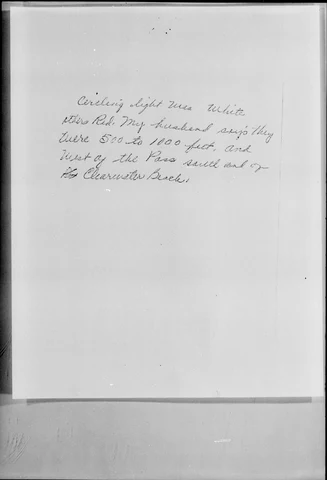 Circling light was white
others Red. My husband says they
were 500 to 1000 feet, and
West of the Pass south end of
Clearwater Beach.